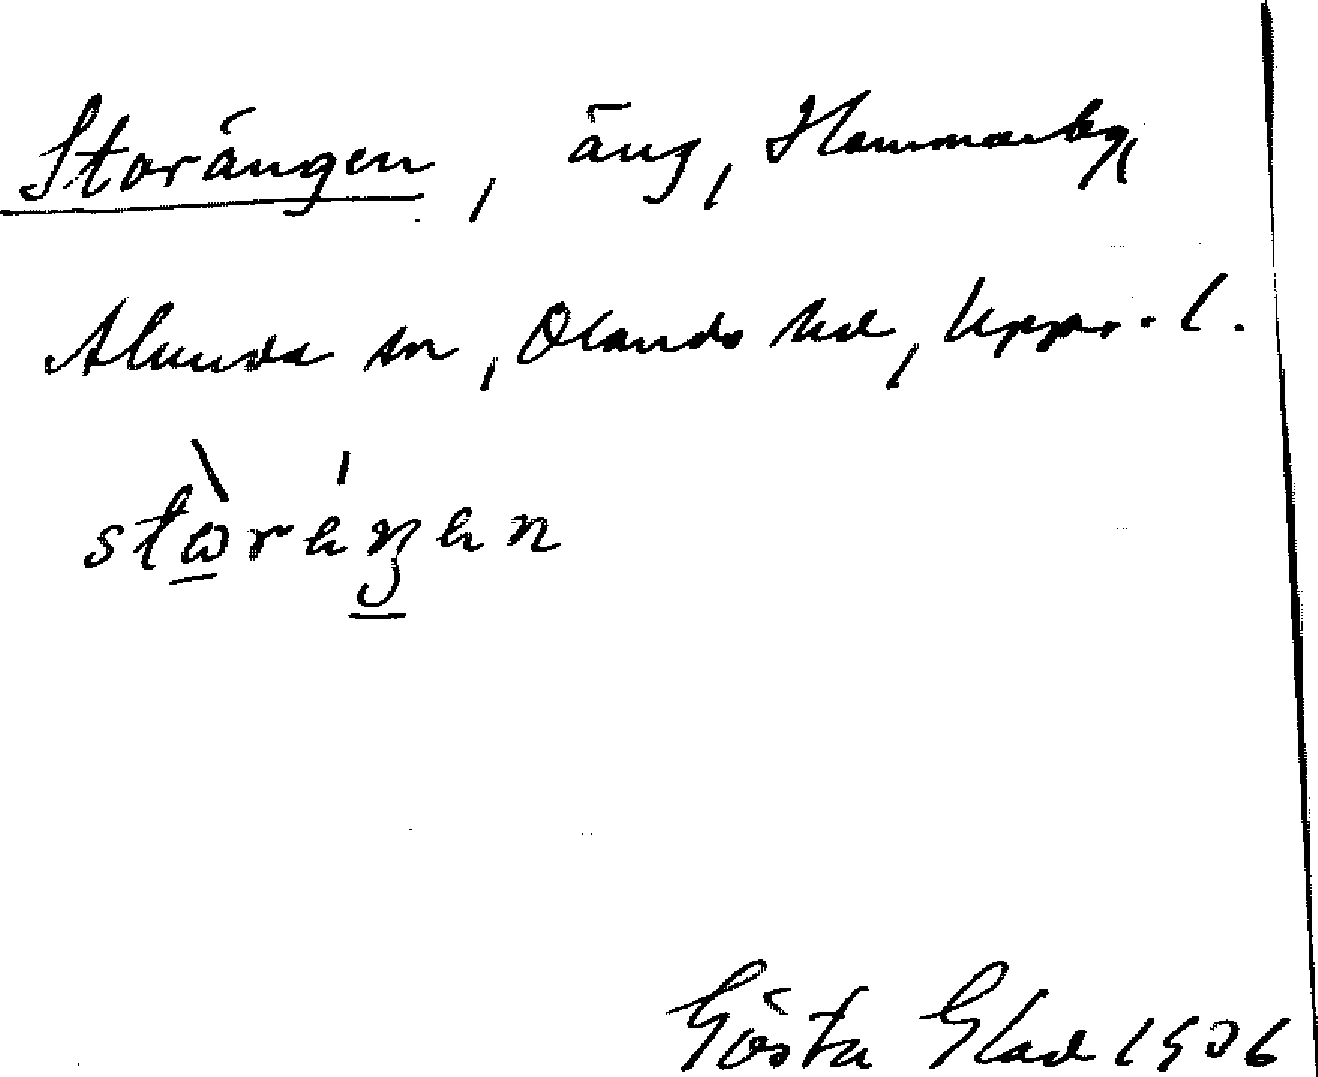 Storängen, äng, Hammarby,
Alunda sn, Olands hd, Upps. l.
Gösta Glad 1906